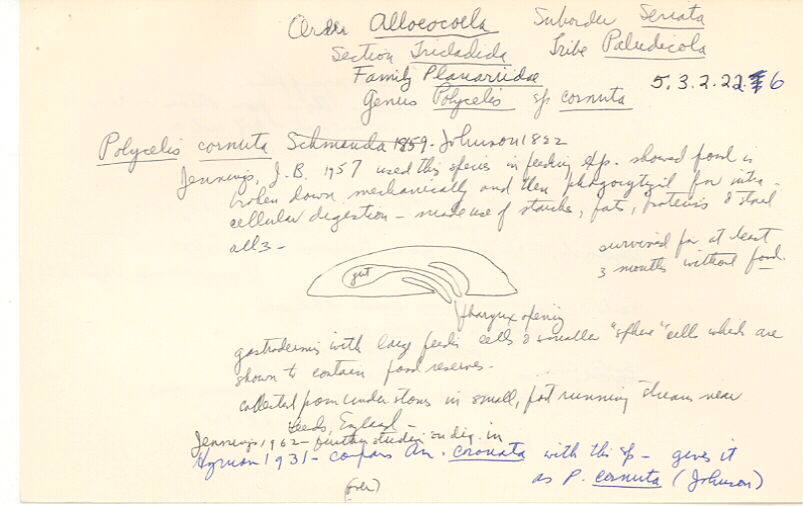 Order Alloeocoela Suborder Seriata
Section Tricladida Tribe Paludicola
Family Planariidae
5.3.2.22.6
Genus Polycelis sp cornuta
Polycelis cornuta Schmarda 1859 - Johnson 1822
Jennings, J.B. 1957 used this species in feeding exp. showed food is
broken down mechanically and then phagocytized for intra-
cellular digestion - made use of starches, fats, proteins & stored
all 3 -
survived for at least
3 months without food.
gut
pharynx opening
gastrodermis with large feeding cells & smaller "sphere" cells which are
shown to contain food reserves.
collected from under stones in small, fast running stream near
Leeds, England -
Jennings 1962 - further studies on dig. in
Hyman 1931 - compares Am. coronata with this sp - gives it
as P. cornuta (Johnson)
(over)